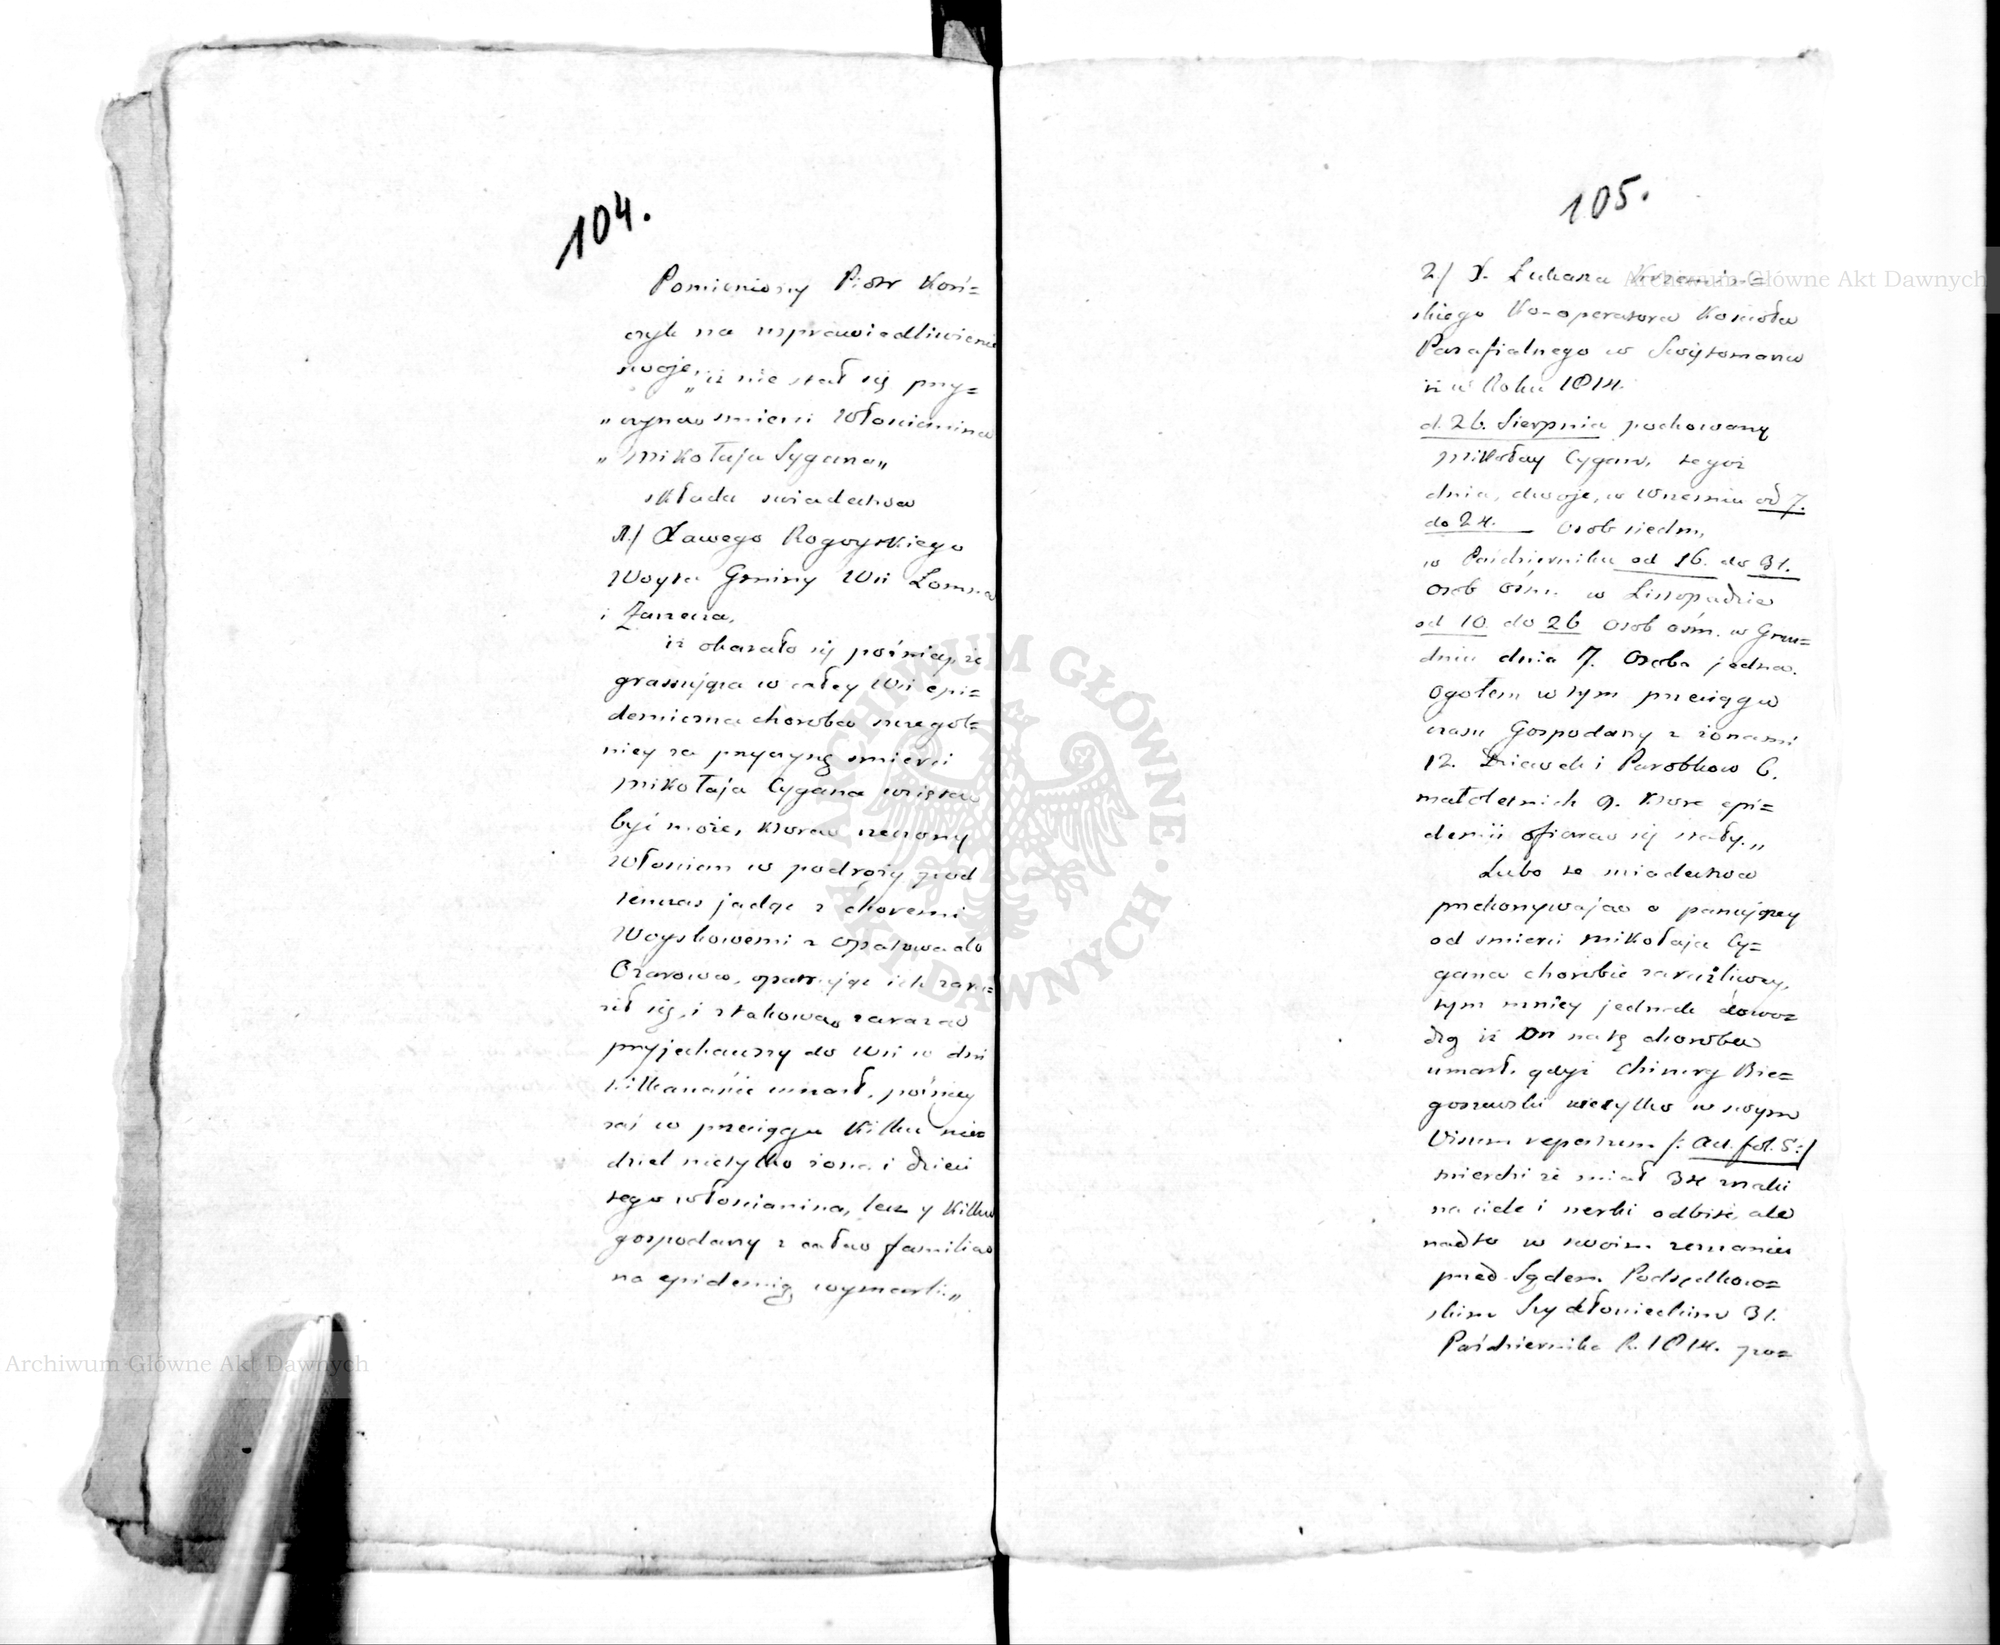 104.
Pomieniony Piotr Koń=
czyk na usprawiedliwienie
swoje, „iż nie stał się przy=
„czynao śmierci Włościanina
„Mikołaja Cygana„
składa świadectwa
1./ Xawego Rogoyskiego
Woyta Gminy Wsi Łomna
i Zarzecza,
iż okazało się późniey, że
grassująca w całey Wsi epi=
demiczna choroba szczegól=
niey za przyczynę śmierci
Mikołaja Cygana wzięta
być może, którao rzeczony
Włościan w podróży pod
tenczas jadąc z choremi
Woyskowemi z Opatowa do
Ożarowa, opatrując ich zara=
ził się, i z takowao zarazao
przyjechawszy do Wsi w dni
kilkanaście umarł, późniey
zaś w przeciągu kilku nie=
dziel nietylko żona i dzieci
tego włościanina, lecz y kilku
gospodarzy z całao familiao
na epidemię wymarli„
105.
2./ X. Łukasza
skiego Ko-operatora Kościoła
Parafialnego w Swiętomarzu
iż w Roku 1814.
d. 26. Sierpnia pochowany
Mikołay Cygan, tegoż
dnia, dwoje, w Wrześniu od 7.
do 24. Osob siedm,
w Październiku od 16. do 31.
Osob ośm. w Listopadzie
od 10. do 26 Osob ośm. w Gru=
dniu dnia 7. Osoba jedna.
Ogółem w tym przeciągu
czasu Gospodarzy z żonami
12. Dziewek i Parobkow 6.
małoletnich 9. które epi=
demii ofiarao się stały.„
Lubo te świadectwa
przekonywajao o panującey
od śmierci Mikołaja Cy=
gana chorobie zaraźliwey,
tym mniey jednak dowo=
dzą iż On na tę chorobę
umarł, gdyż Chirurg Bie=
goszewski nietylko w swym
Visum repertum /: act. fol. 5:/
twierdzi że miał 34 znaki
na ciele i nerki odbite, ale
nadto w swoim zeznaniu
przed Sądem Podsędkowo=
skim Szydłowieckim 31.
Października R. 1814. po=
Archiwum Główne Akt Dawnych
Archiwum Główne Akt Dawnych
ARCHIWUM GŁÓWNE AKT DAWNYCH